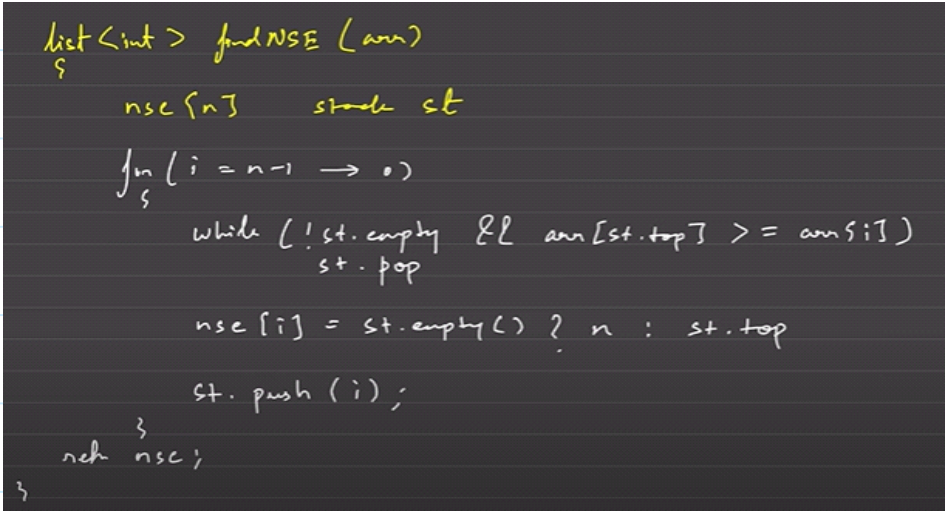 list<int> findNSE (arr)
{
nse[n] stack st
for (i = n-1 → 0)
{
while (!st.empty && arr[st.top] >= arr[i])
st.pop
nse[i] = st.empty() ? n : st.top
st.push(i);
}
retn nse;
}